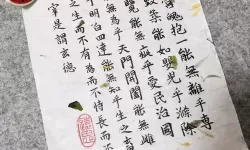 魄抱一能無離乎專
能如嬰兒乎滌除
能無疵乎愛民治國
能無為乎天門開闔能無
乎明白四達能無知乎生之
之生而不有為而不恃長而
宰是謂玄德